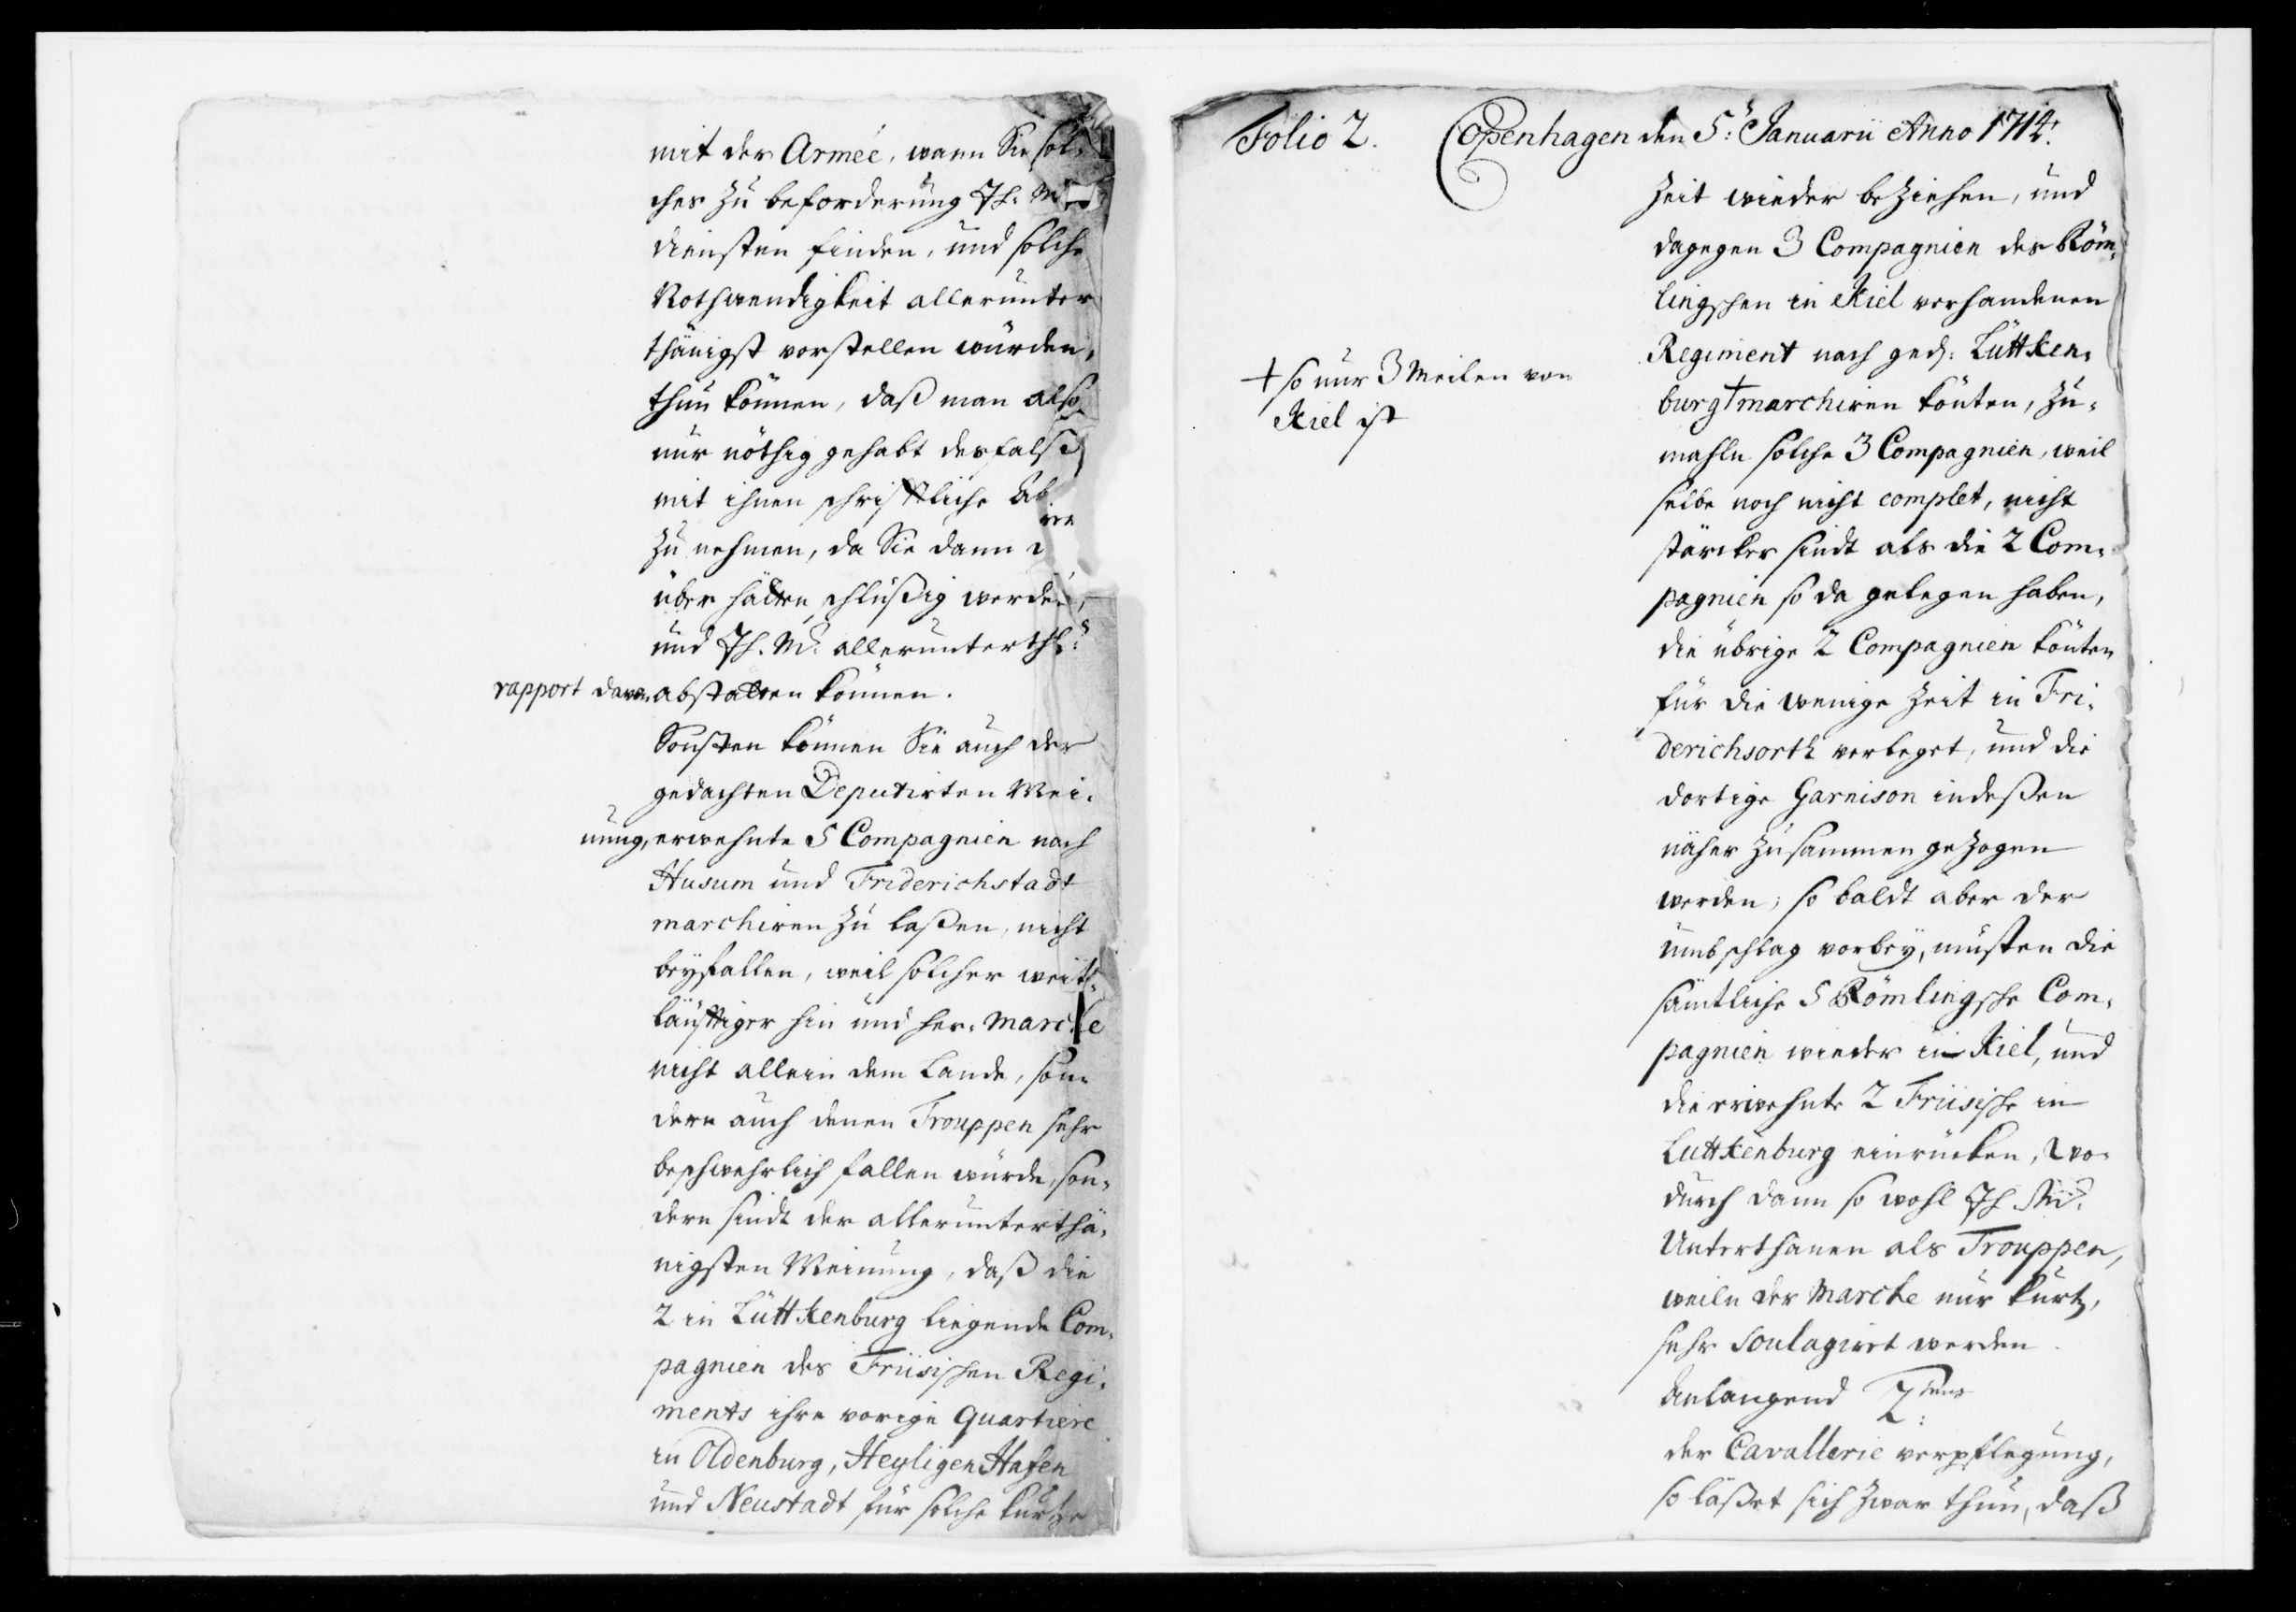 mit der Armée, wann Sie sol-
ches zu beforderung Ih: M
diensten finden, und solche
Nothwendigkeit allerunter
thänigst vorstellen würden,
thun können, daß man also
nur nöthig gehabt desfalß
mit ihnen schrifftliche Ab
zu nehmen, da Sie dann
über hätten schlüßig werden,
und Ih. M: allerunterth:
rapport davon abstatten können.
Sonsten können Sie auch der
gedachten Deputirten Mei-
nung, erwehnte 5 Compagnien nach
Husum und Friderichstadt
marchiren zu laßen, nicht
beyfallen, weil solcher weit-
läufftiger hin und her-marche
nicht allein dem Lande, son-
dern auch denen Trouppen sehr
beschwehrlich fallen würde, son-
dern sindt der allerunterthä-
nigsten Meinung, daß die
2 in Lüttkenburg liegende Com-
pagnien des Friisischen Regi-
ments ihre vorige Quartiere
in Oldenburg, Heyligen Hafen
und Neustadt für solche kurtze
Folio 2. Copenhagen den 5: Januarii Anno 1714.
Zeit wieder beziehen, und
dagegen 3 Compagnien des Röm-
lingschen in Kiel verhandenen
Regiment nach ged: Lüttken-
burg † marchiren könten, zu-
† so nur 3 Meilen von
Kiel ist
mahln solche 3 Compagnien, weil
selbe noch nicht complet, nicht
stärcker sindt als die 2 Com-
pagnien so da gelegen haben,
die übrige 2 Compagnien könten
für die wenige Zeit in Fri-
derichsorth verleget, und die
dortige Garnison indeßen
näher zusammen gezogen
werden; so baldt aber der
Umbschlag vorbey, müsten die
sämtliche 5 Römlingsche Com-
pagnien wieder in Kiel, und
die erwehnte 2 Friisische in
Luttkenburg einrücken, wo-
durch dann so wohl Ih M:
Unterthanen als Trouppen,
weiln der Marche nur kurtz,
sehr soulagirt werden.
Anlangend 2tens
der Cavallerie verpflegung,
so läßet sich zwar thun, daß